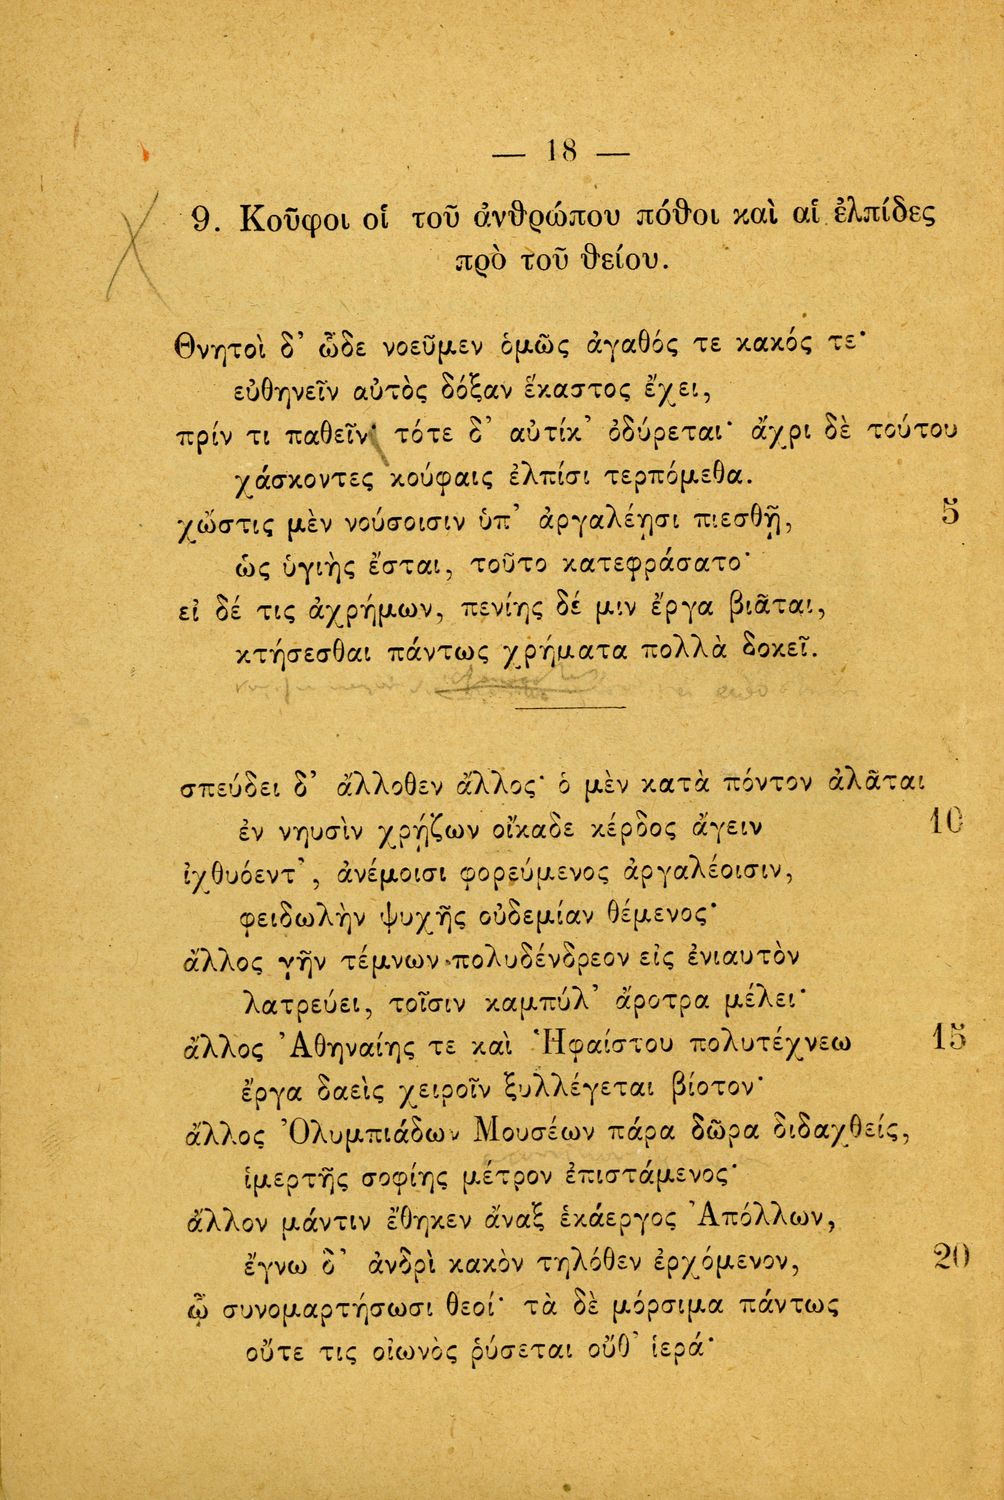 — 18 —
9. Κοῦφοι οἱ τοῦ ἀνθρώπου πόθοι καὶ αἱ ἐλπίδες
πρὸ τοῦ θείου.
Θνητοὶ δ’ ὧδε νοεῦμεν ὁμῶς ἀγαθός τε κακός τε·
εὐθηνεῖν αὐτὸς δόξαν ἕκαστος ἔχει,
πρίν τι παθεῖν· τότε δ’ αὐτίκ’ ὀδύρεται· ἄχρι δὲ τούτου
χάσκοντες κούφαις ἐλπίσι τερπόμεθα.
χὤστις μὲν νούσοισιν ὑπ’ ἀργαλέῃσι πιεσθῇ, 5
ὡς ὑγιὴς ἔσται, τοῦτο κατεφράσατο·
εἰ δέ τις ἀχρήμων, πενίης δέ μιν ἔργα βιᾶται,
κτήσεσθαι πάντως χρήματα πολλὰ δοκεῖ.
σπεύδει δ’ ἄλλοθεν ἄλλος· ὁ μὲν κατὰ πόντον ἀλᾶται
ἐν νηυσὶν χρῄζων οἴκαδε κέρδος ἄγειν 10
ἰχθυόεντ’, ἀνέμοισι φορεύμενος ἀργαλέοισιν,
φειδωλὴν ψυχῆς οὐδεμίαν θέμενος·
ἄλλος γῆν τέμνων πολυδένδρεον εἰς ἐνιαυτὸν
λατρεύει, τοῖσιν καμπύλ’ ἄροτρα μέλει·
ἄλλος Ἀθηναίης τε καὶ Ἡφαίστου πολυτέχνεω 15
ἔργα δαεὶς χειροῖν ξυλλέγεται βίοτον·
ἄλλος Ὀλυμπιάδων Μουσέων πάρα δῶρα διδαχθείς,
ἱμερτῆς σοφίης μέτρον ἐπιστάμενος·
ἄλλον μάντιν ἔθηκεν ἄναξ ἑκάεργος Ἀπόλλων,
ἔγνω δ’ ἀνδρὶ κακὸν τηλόθεν ἐρχόμενον, 20
ᾧ συνομαρτήσωσι θεοί· τὰ δὲ μόρσιμα πάντως
οὔτε τις οἰωνὸς ῥύσεται οὔθ’ ἱερά·